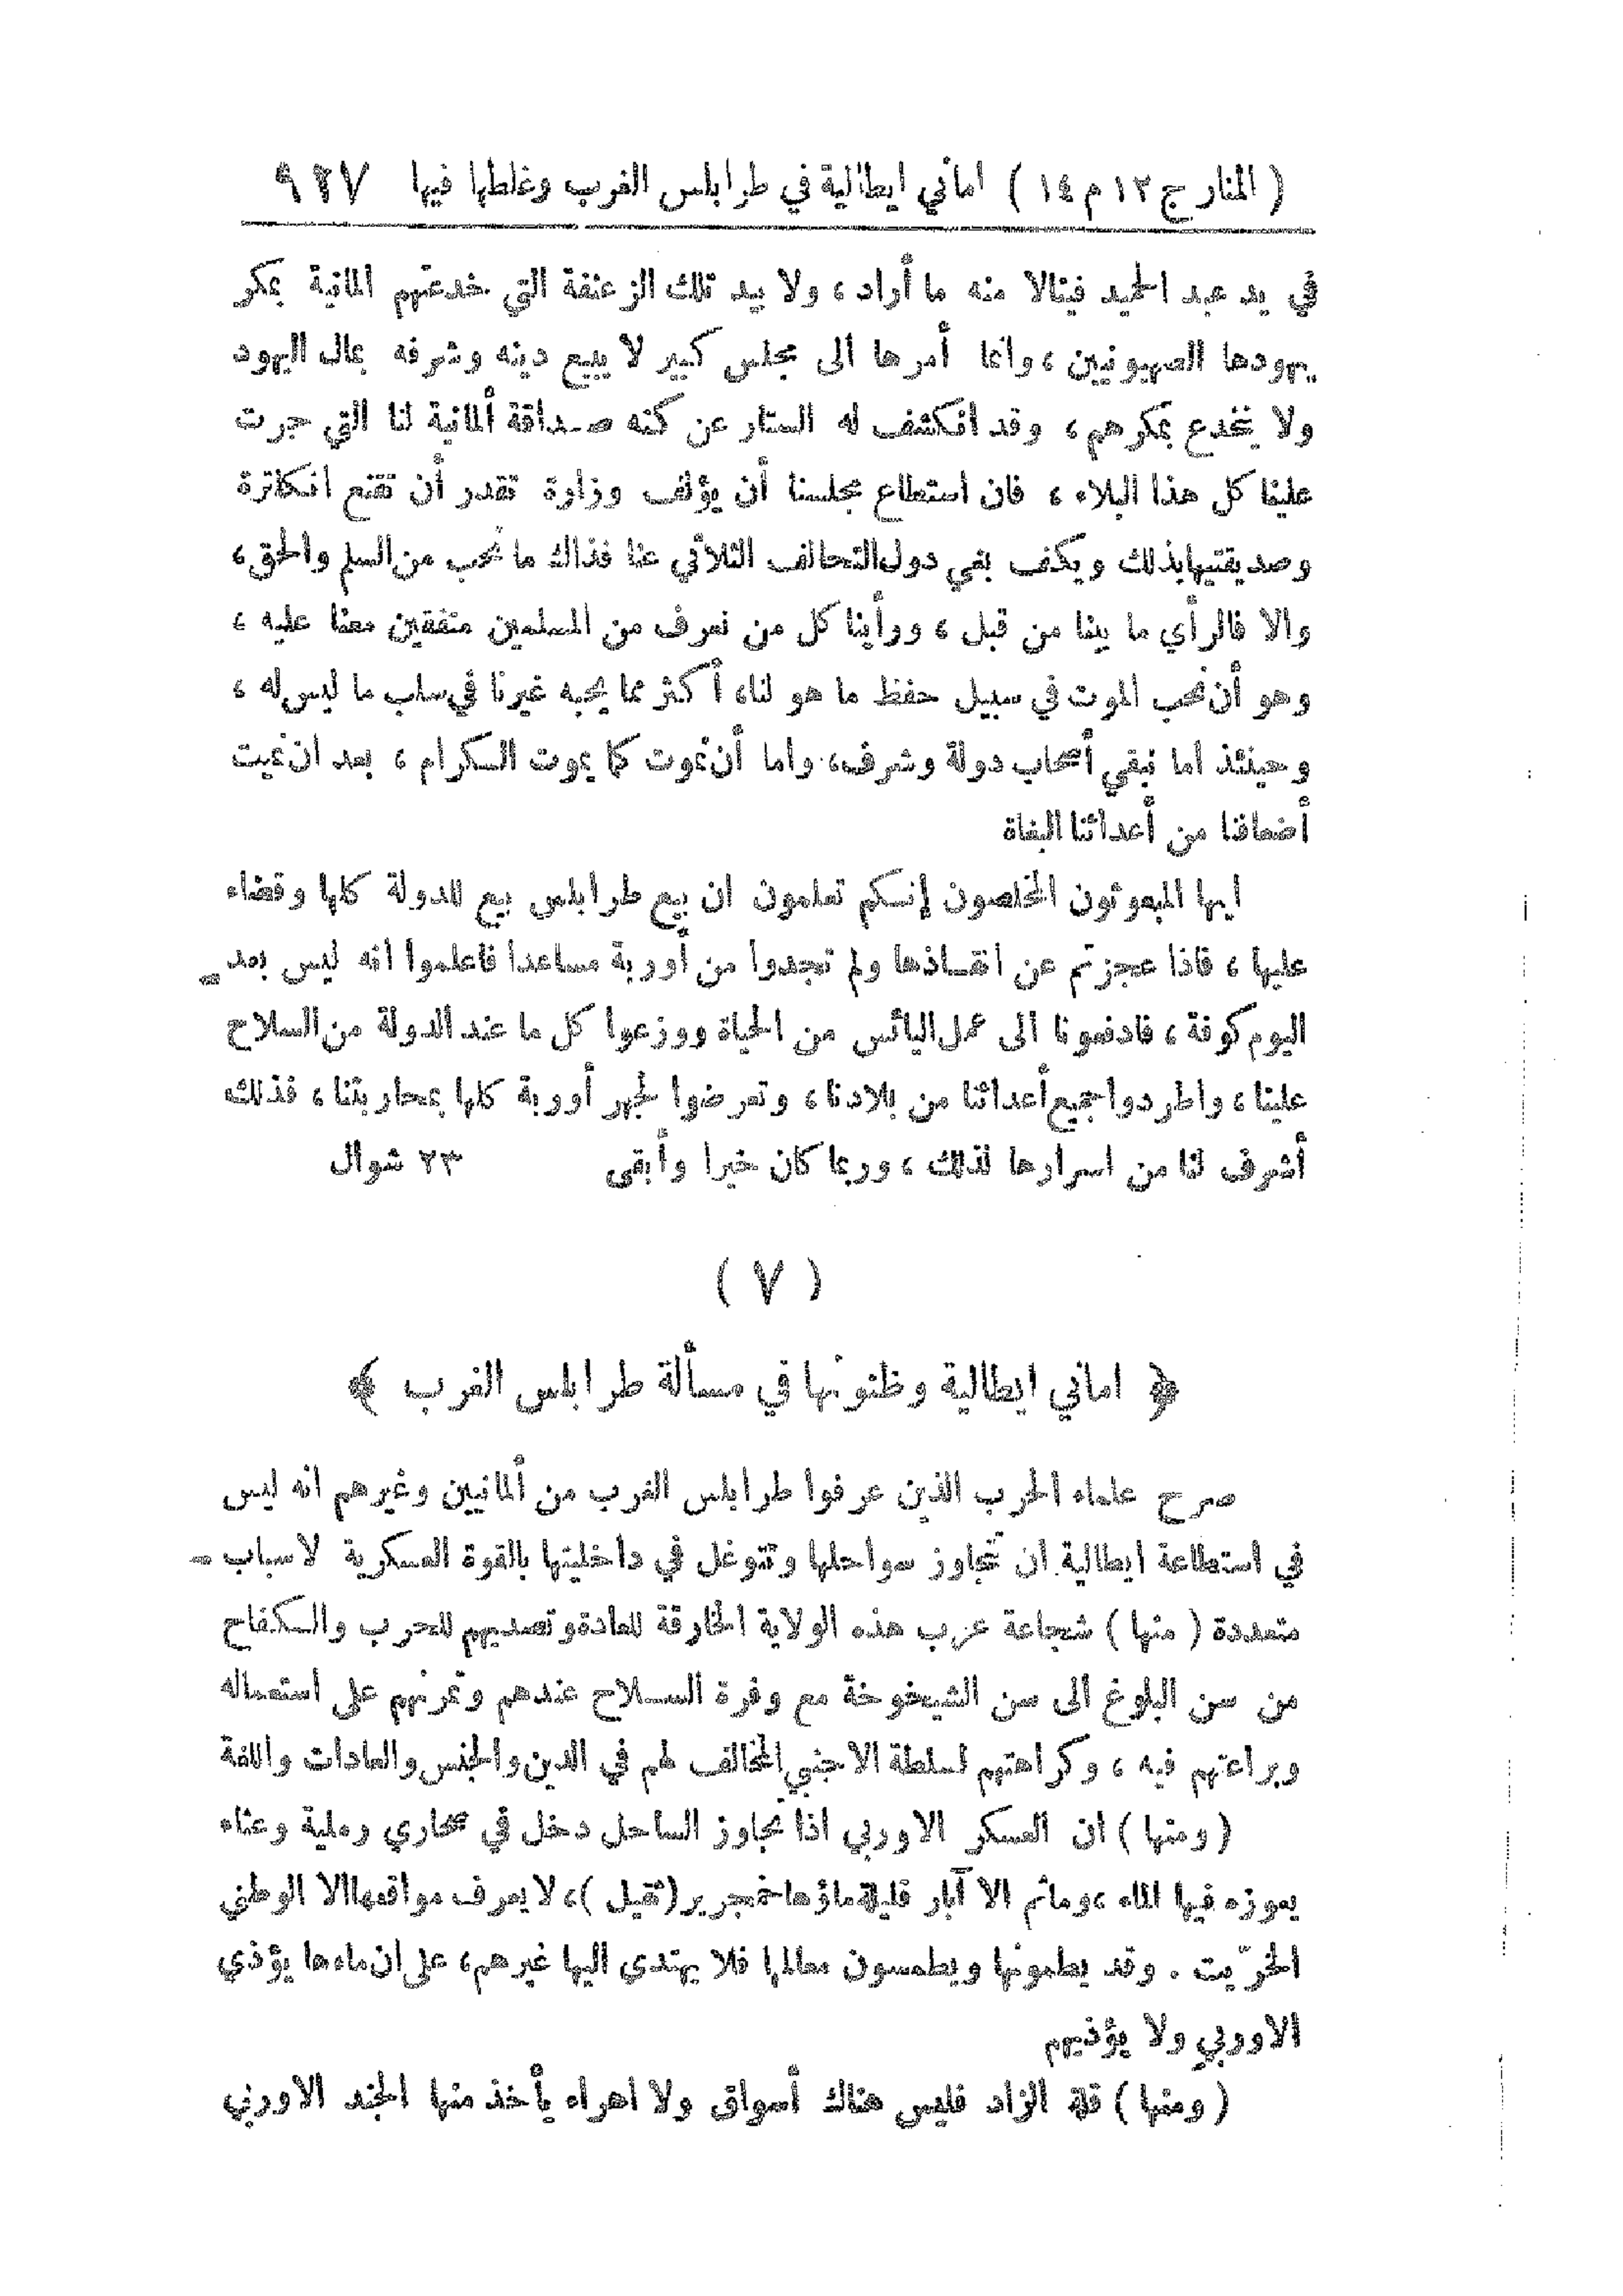 ( المنار ج ١٢ م ١٤ ) اماني ايطالية في طرابلس الغرب وغلطها فيها ٩٢٧
في يد عبد الحميد فينالا منه ما أراد، ولا بيد تلك الزعنفة التي خدعتهم المانية بمكر
يهودها الصهيونيين، وانما أمرها الى مجلس كبير لا يبيع دينه وشرفه بمال اليهود
ولا يخدع بمكرهم، وقد انكشف له الستار عن كنه صداقة ألمانية لنا التي جرت
علينا كل هذا البلاء، فان استطاع مجلسنا أن يؤلف وزارة تقدر أن تقنع انكلترة
وصديقتيها بذلك ويكف بغي دول التحالف الثلاثي عنا فذاك ما نحب من السلم والحق،
والا فالرأي ما بينا من قبل، ورأينا كل من نعرف من المسلمين متفقين معنا عليه،
وهو أن نحب الموت في سبيل حفظ ما هو لنا، أكثر مما يحبه غيرنا في سلب ما ليس له،
وحينئذ اما نبقي أصحاب دولة وشرف، واما أن نموت كما يموت الكرام، بعد ان نميت
أضعافنا من أعدائنا البغاة
ايها المبعوثون المخلصون إنكم تعلمون ان بيع طرابلس بيع للدولة كلها وقضاء
عليها، فاذا عجزتم عن انقاذها ولم تجدوا من أوربة مساعدا فاعلموا انه ليس بعد
اليوم كوفة، فادفعونا الى عمل اليائس من الحياة ووزعوا كل ما عند الدولة من السلاح
علينا، واطردوا جميع أعدائنا من بلادنا، وتعرضوا لجهر أوربة كلها بمحاربتنا، فذلك
أشرف لنا من اسرارها لذلك، وربما كان خيرا وأبقى ٢٣ شوال
( ٧ )
﴿ اماني ايطالية وظنونها في مسألة طرابلس الغرب ﴾
صرح علماء الحرب الذين عرفوا طرابلس الغرب من ألمانيين وغيرهم انه ليس
في استطاعة ايطالية ان تتجاوز سواحلها وتتوغل في داخليتها بالقوة العسكرية لاسباب
متعددة ( منها ) شجاعة عرب هذه الولاية الخارقة للعادة وتصديهم للحرب والكفاح
من سن البلوغ الى سن الشيخوخة مع وفرة السلاح عندهم وتمرنهم على استعماله
وبراعتهم فيه، وكراهتهم لسلطة الاجنبي المخالف لهم في الدين والجنس والعادات واللغة
( ومنها ) ان العسكر الاوربي اذا تجاوز الساحل دخل في صحاري رملية وعثاء
يعوزه فيها الماء، وما ثم الا آبار قليلة ماؤها خمجرير ( ثقيل )، لا يعرف مواقعها الا الوطني
الخرّيت. وقد يطمونها ويطمسون معالمها فلا يهتدي اليها غيرهم، على ان ماءها يؤذي
الاوربي ولا يؤذيهم
( ومنها ) قلة الزاد فليس هناك أسواق ولا اهراء يأخذ منها الجند الاوربي